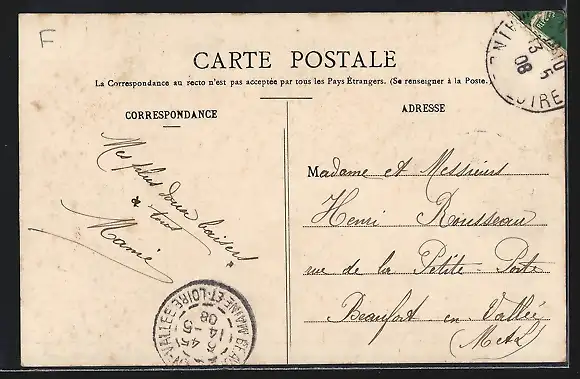 F
CARTE POSTALE
La Correspondance au recto n'est pas acceptée par tous les Pays Étrangers. (Se renseigner à la Poste.
CORRESPONDANCE
ADRESSE
Mes plus doux baisers
à tous
Mamie
Madame et Messieurs
Henri Rousseau
rue de la Petite-Porte
Beaufort en Vallée
(M et L)
3-5
08
LOIRE
VALLÉE
MAINE-ET-LOIRE
14-5
08